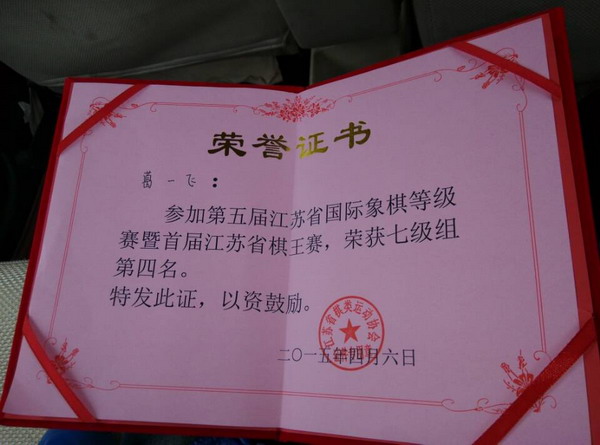 荣誉证书
葛一飞：
参加第五届江苏省国际象棋等级
赛暨首届江苏省棋王赛，荣获七级组
第四名。
特发此证，以资鼓励。
江苏省棋类运动协会
二〇一五年四月六日